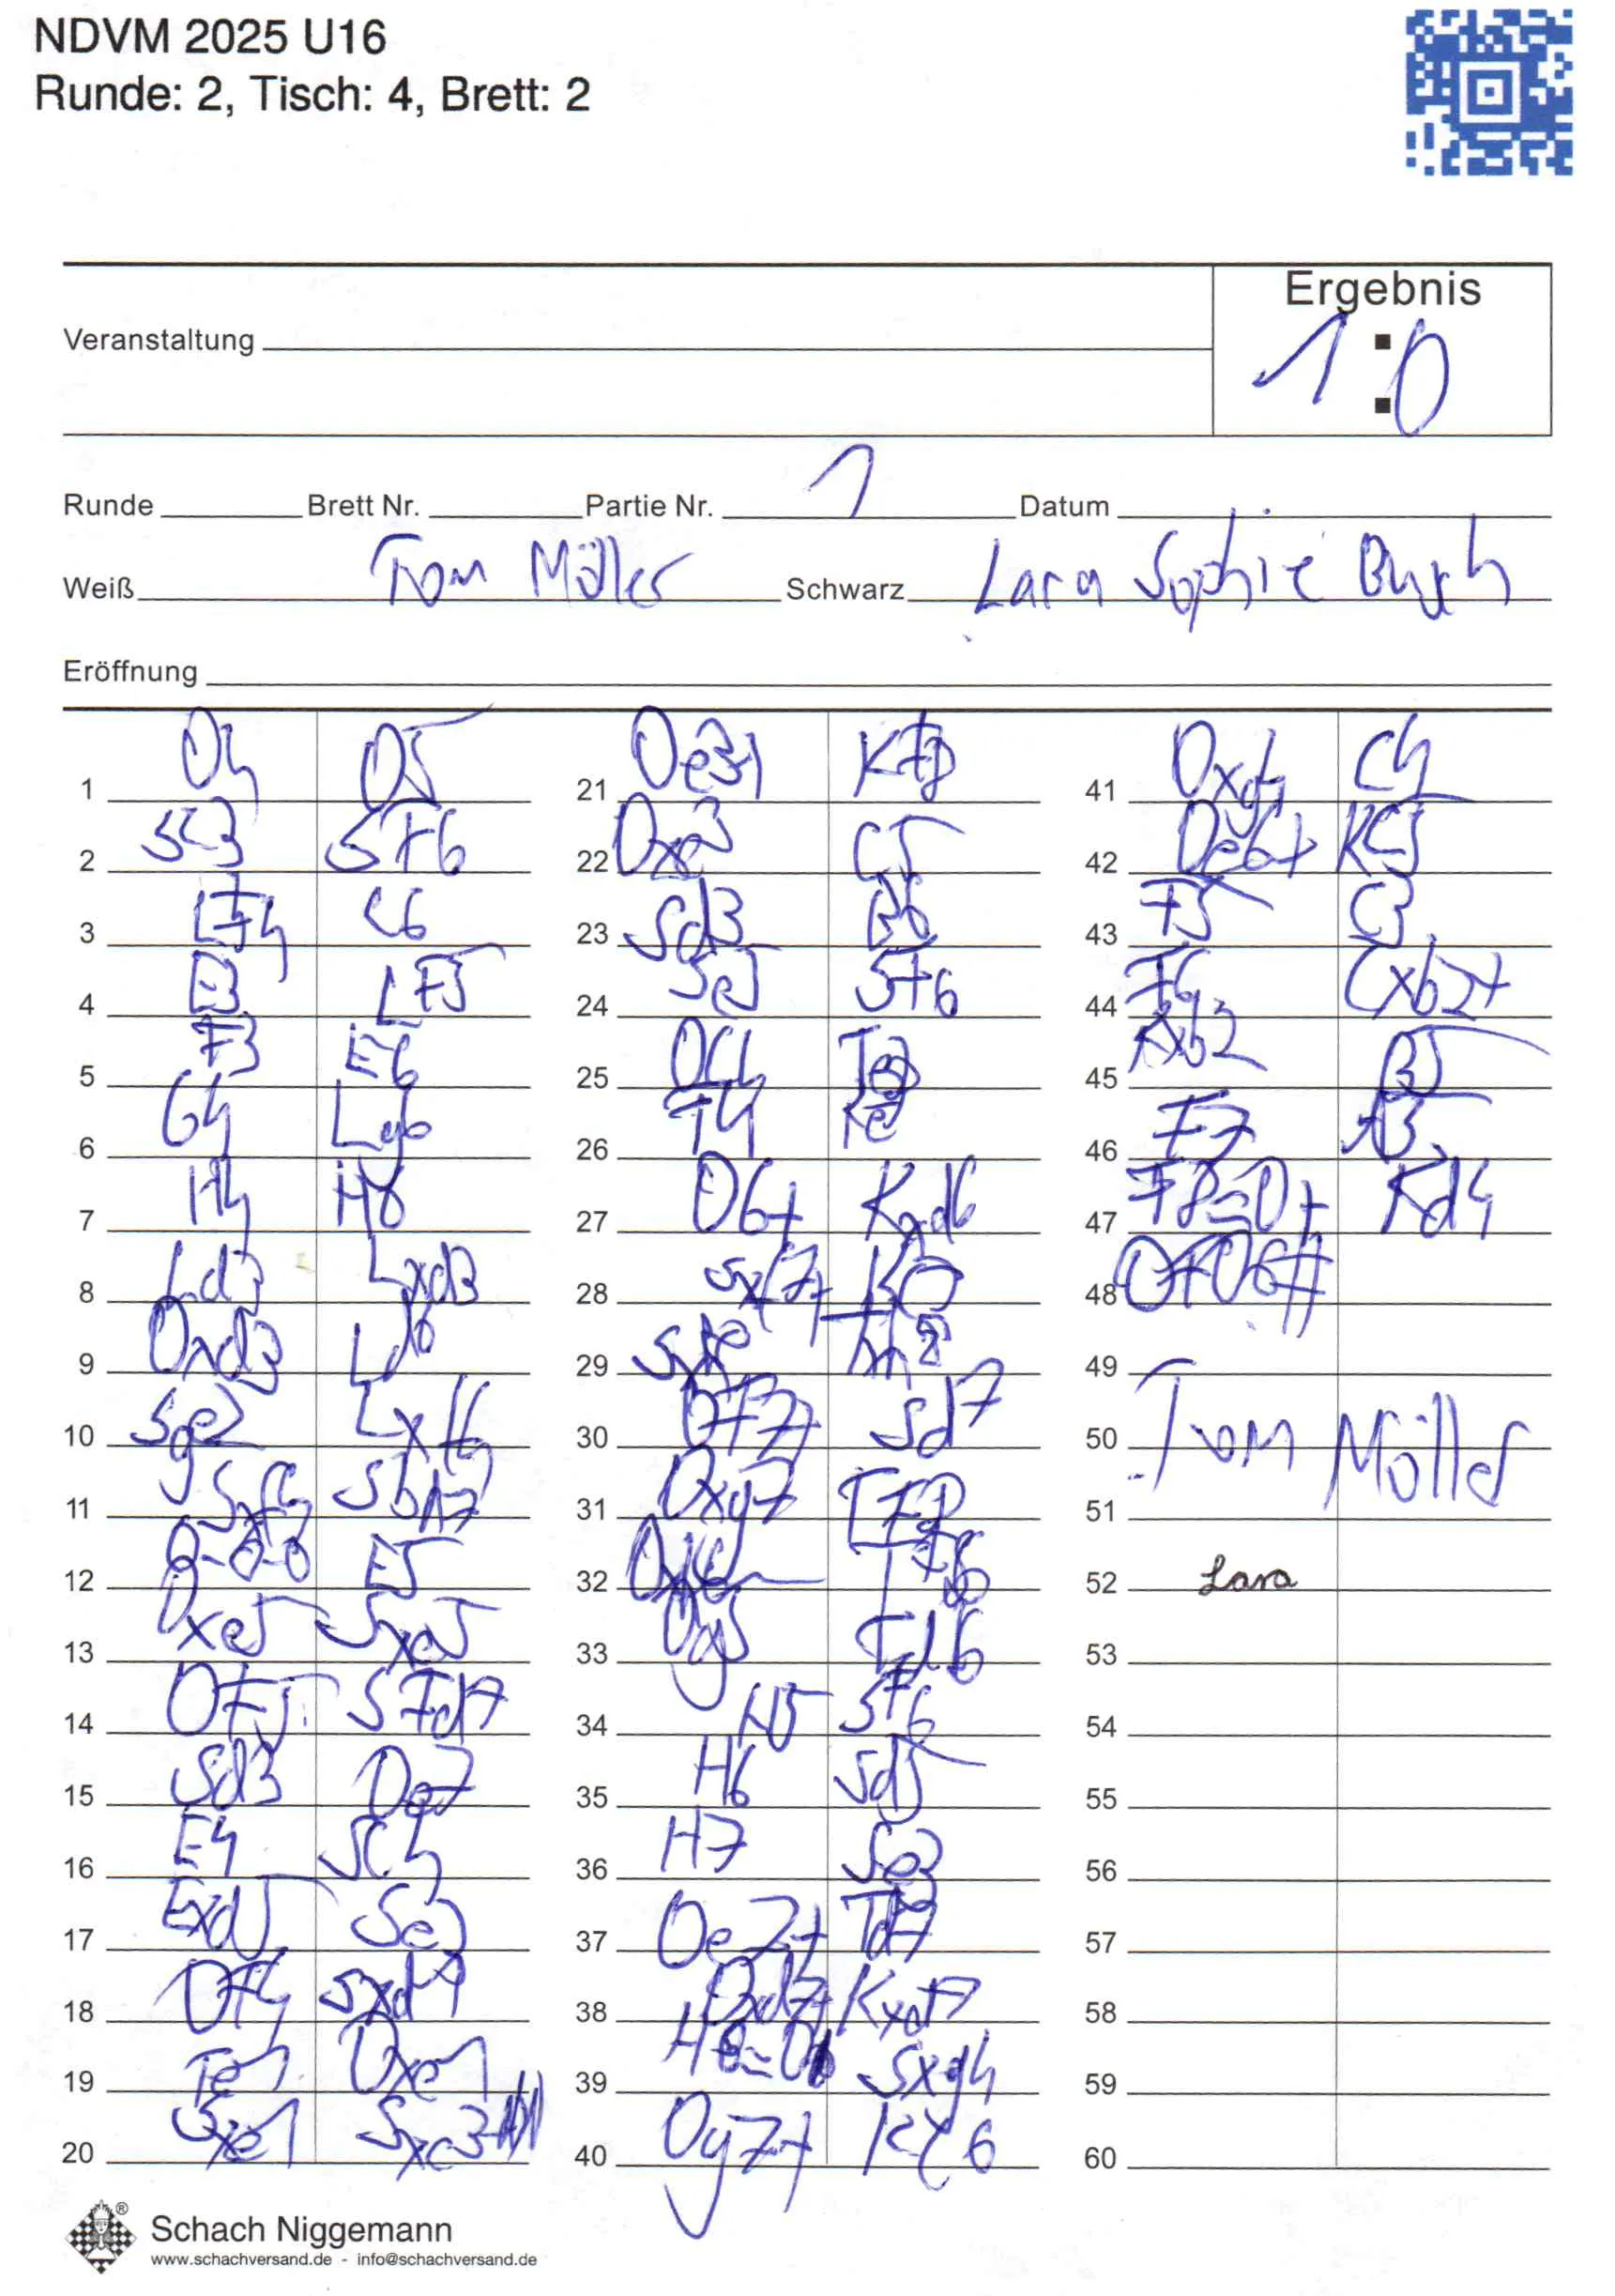 NDVM 2025 U16
Runde: 2, Tisch: 4, Brett: 2
Ergebnis
Veranstaltung
1:0
Runde Brett Nr. Partie Nr. 1 Datum
Weiß Tom Möller Schwarz Lara Sophie
Eröffnung
1 D4 D5
2 SC3 SF6
3 LF4 C6
4 E3 LF5
5 F3 E6
6 G4 Lg6
7 H4 H6
8 Ld3 Lxd3
9 Dxd3 Ld6
10 Sge2 Lxf4
11 Sxf4 Sbd7
12 0-0-0 E5
13 Dxe5 Sxe5
14 DF5 SFd7
15 Sd3 De7
16 E4 SC4
17 Exd5 Se3
18 DF4 Sxd1
19 Te1 Dxe1
20 Sxe1 Sxc3
21 De3+ KF8
22 Dxc3 C5
23 Sd3 B6
24 Se5 SF6
25 DC4
26 F4
27 D6+ Kxd6
28 Sxf7+
29
30 DF7+ Sd7
31 Dxg7 TF8
32
33 Dg5
34 H5 SF6
35 H6 Sd5
36 H7 Se3
37 De7+ Td7
38 Dxd7+ Kxd7
39 H8=D Sxg4
40 Dg7+ KC6
41 Dxg4 C4
42 De6+ KC5
43 F5 C3
44 F6 Cxb2+
45 Kxb2 B5
46 F7 A5
47 F8=D+ Kd4
48
49
50 Tom Möller
51
52 Lara
53
54
55
56
57
58
59
60
Schach Niggemann
www.schachversand.de - info@schachversand.de